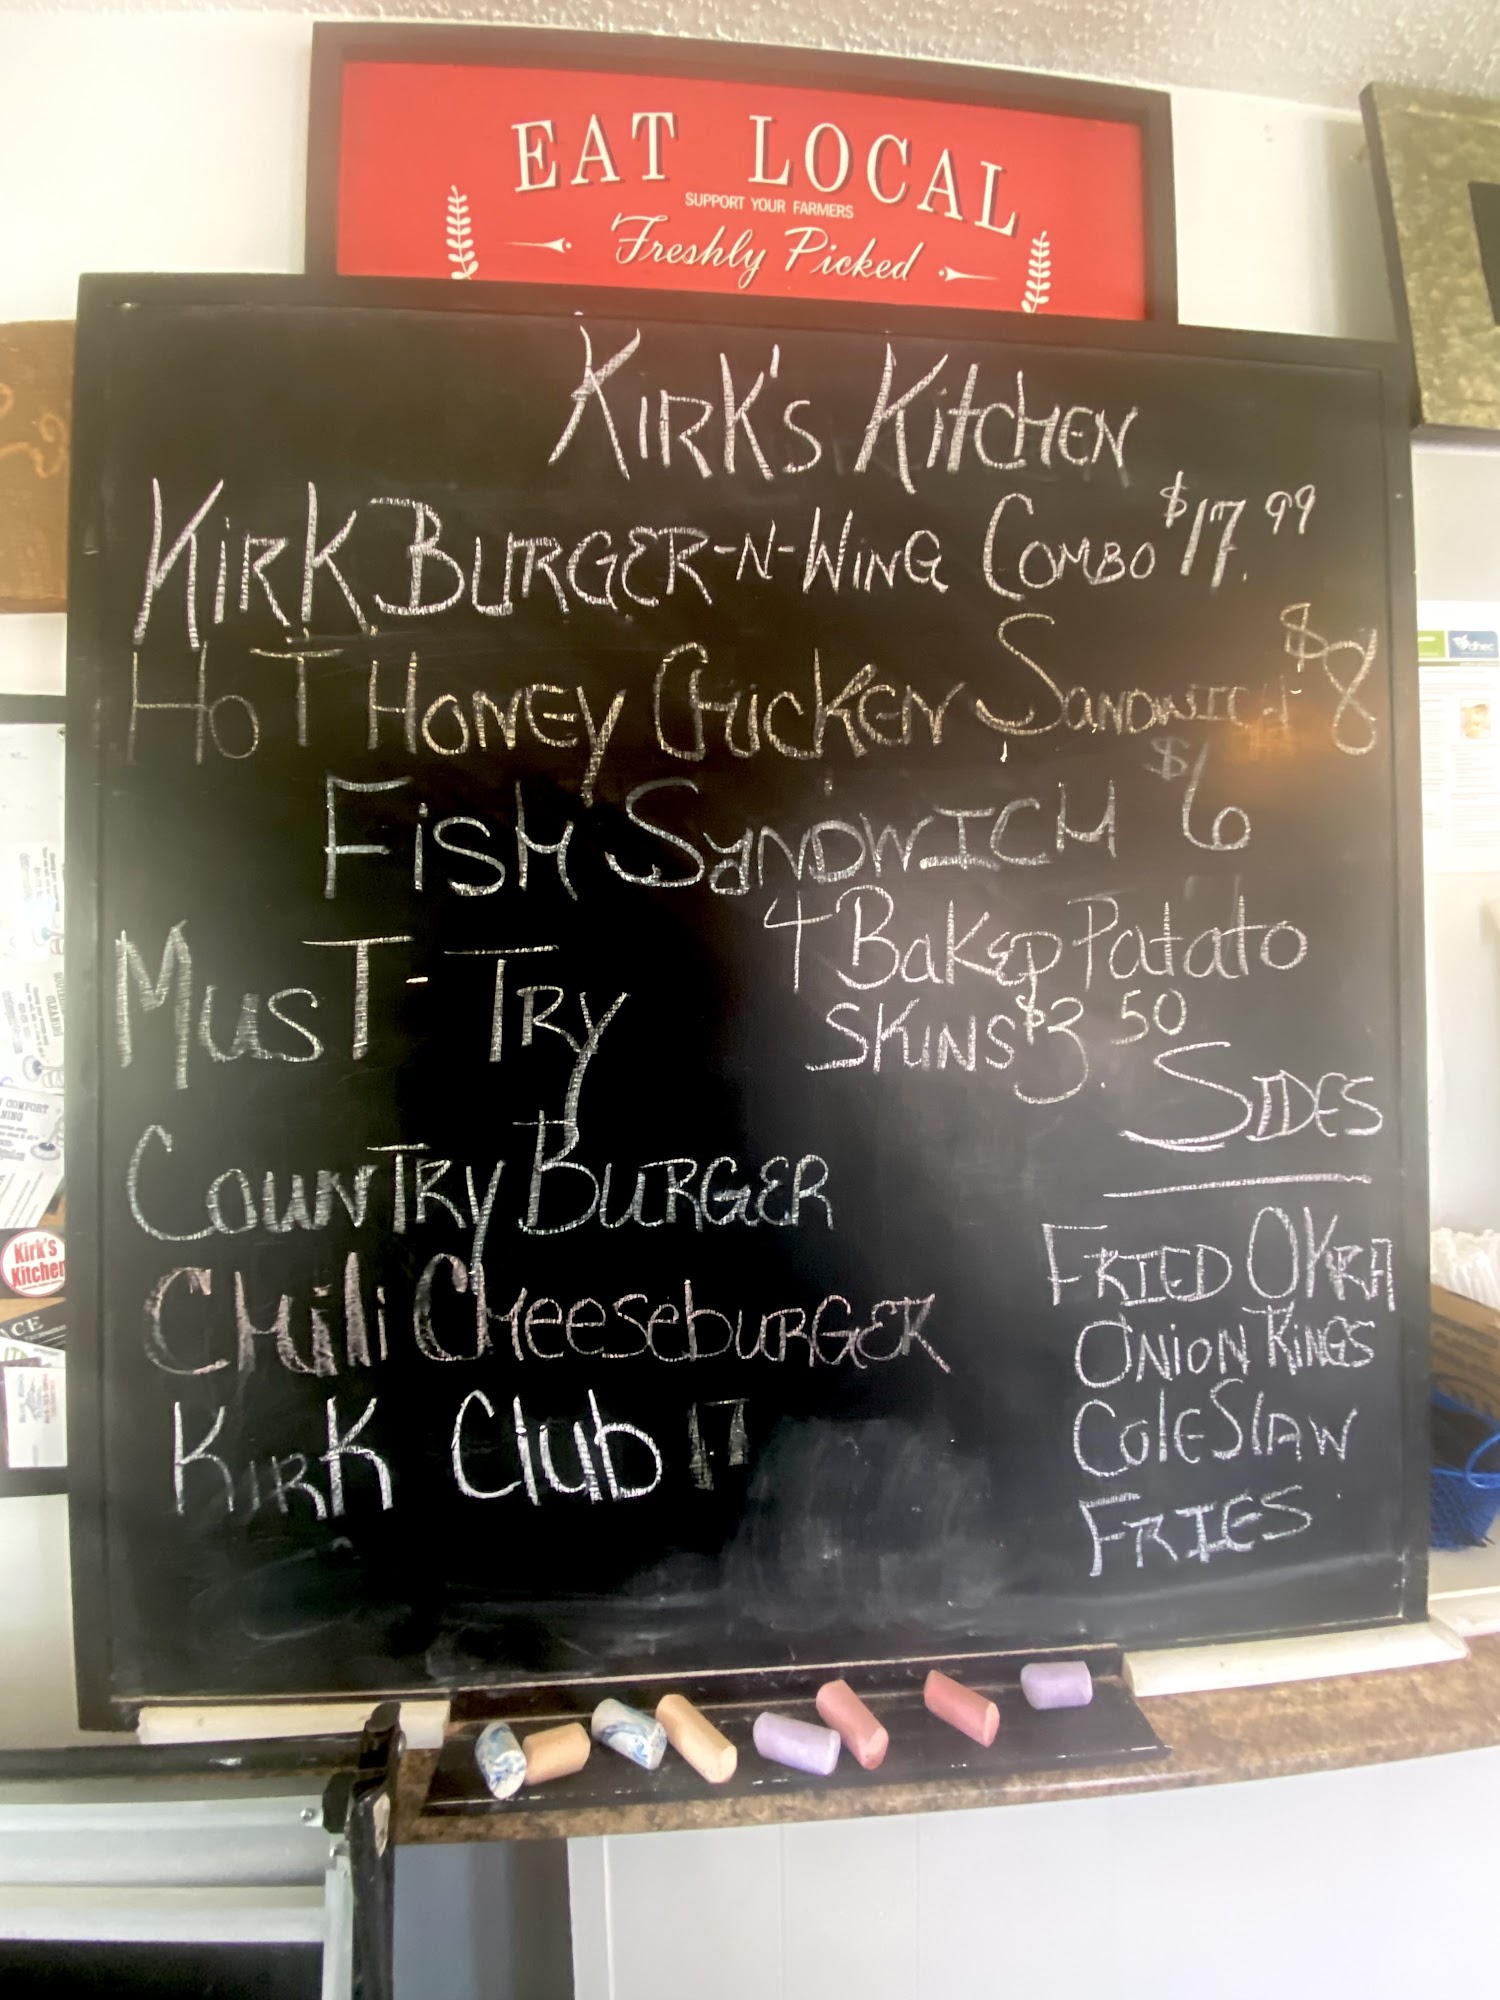 EAT LOCAL
SUPPORT YOUR FARMERS
Freshly Picked
KIRK'S KitCHEN
KIRK BURGER-N-WING COMBO $17.99
HOT HONEY CHICKEN SANDWICH $8
FISH SANDWICH $6
4 BAKED PATATO
SKINS $3.50
MUST-TRY
COUNTRY BURGER
CHili CHeeseburGER
KIRK Club 17
SIDES
FRIED OKRA
ONION RINGS
COLE SLAW
FRIES
Kirk's
Kitchen
COMFORT
dhec